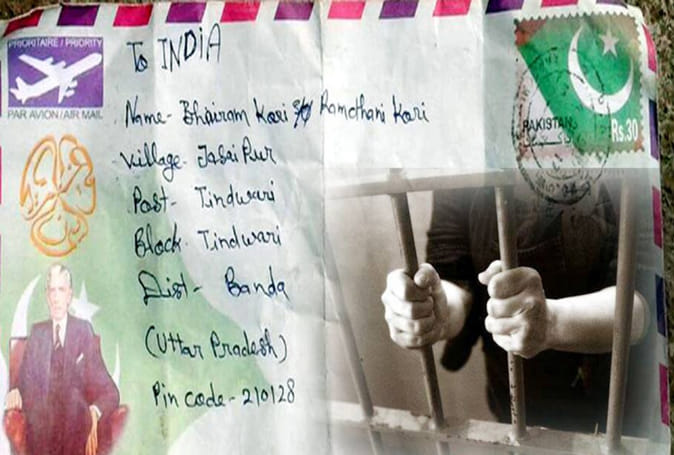 PRIORITAIRE / PRIORITY
PAR AVION/AIR MAIL
To INDIA
Name- Bhairam Kori S/o Ramdhani Kori
Village- Jasai Pur
Post- Tindwari
Block- Tindwari
Dist- Banda
(Uttar Pradesh)
Pin code- 210128
PAKISTAN
پاکستان
Rs.30